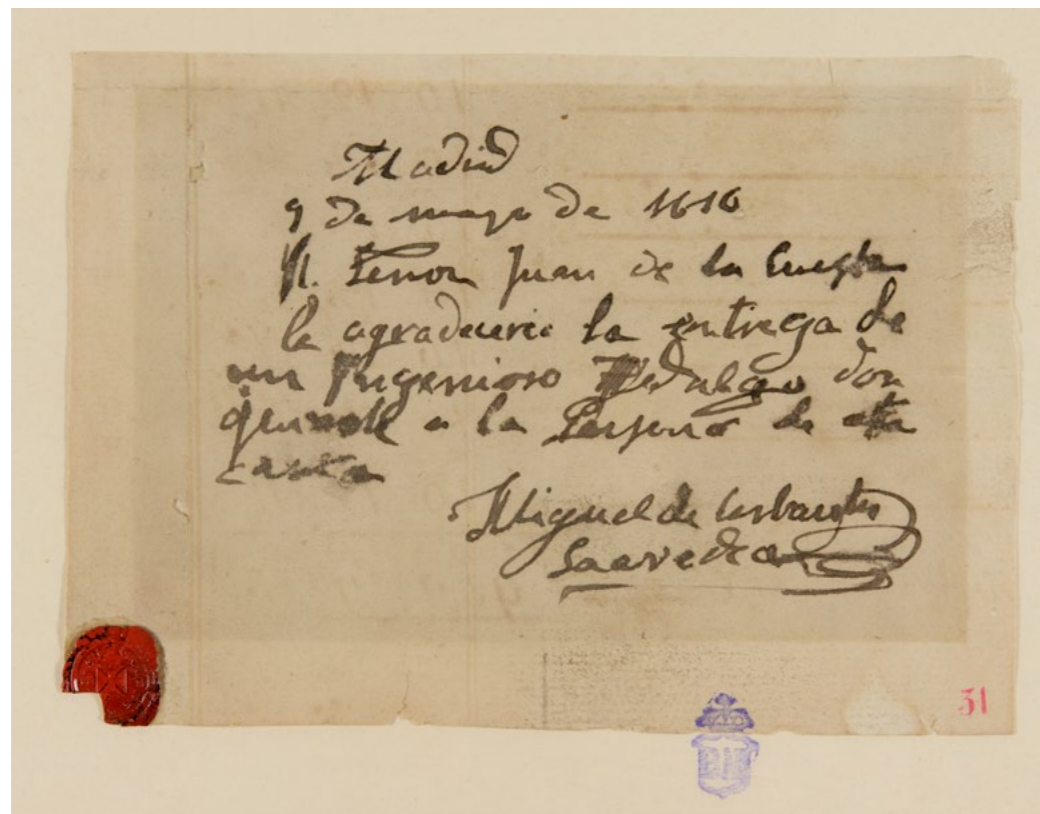 Madrid
9 de mayo de 1616
Sr. Señor Juan de la Cuesta
le agradeceria la entrega de
un Yngenioso Hidalgo don
quixote a la Persona de esta
carta
Miguel de Cerbantes
Saavedra
31